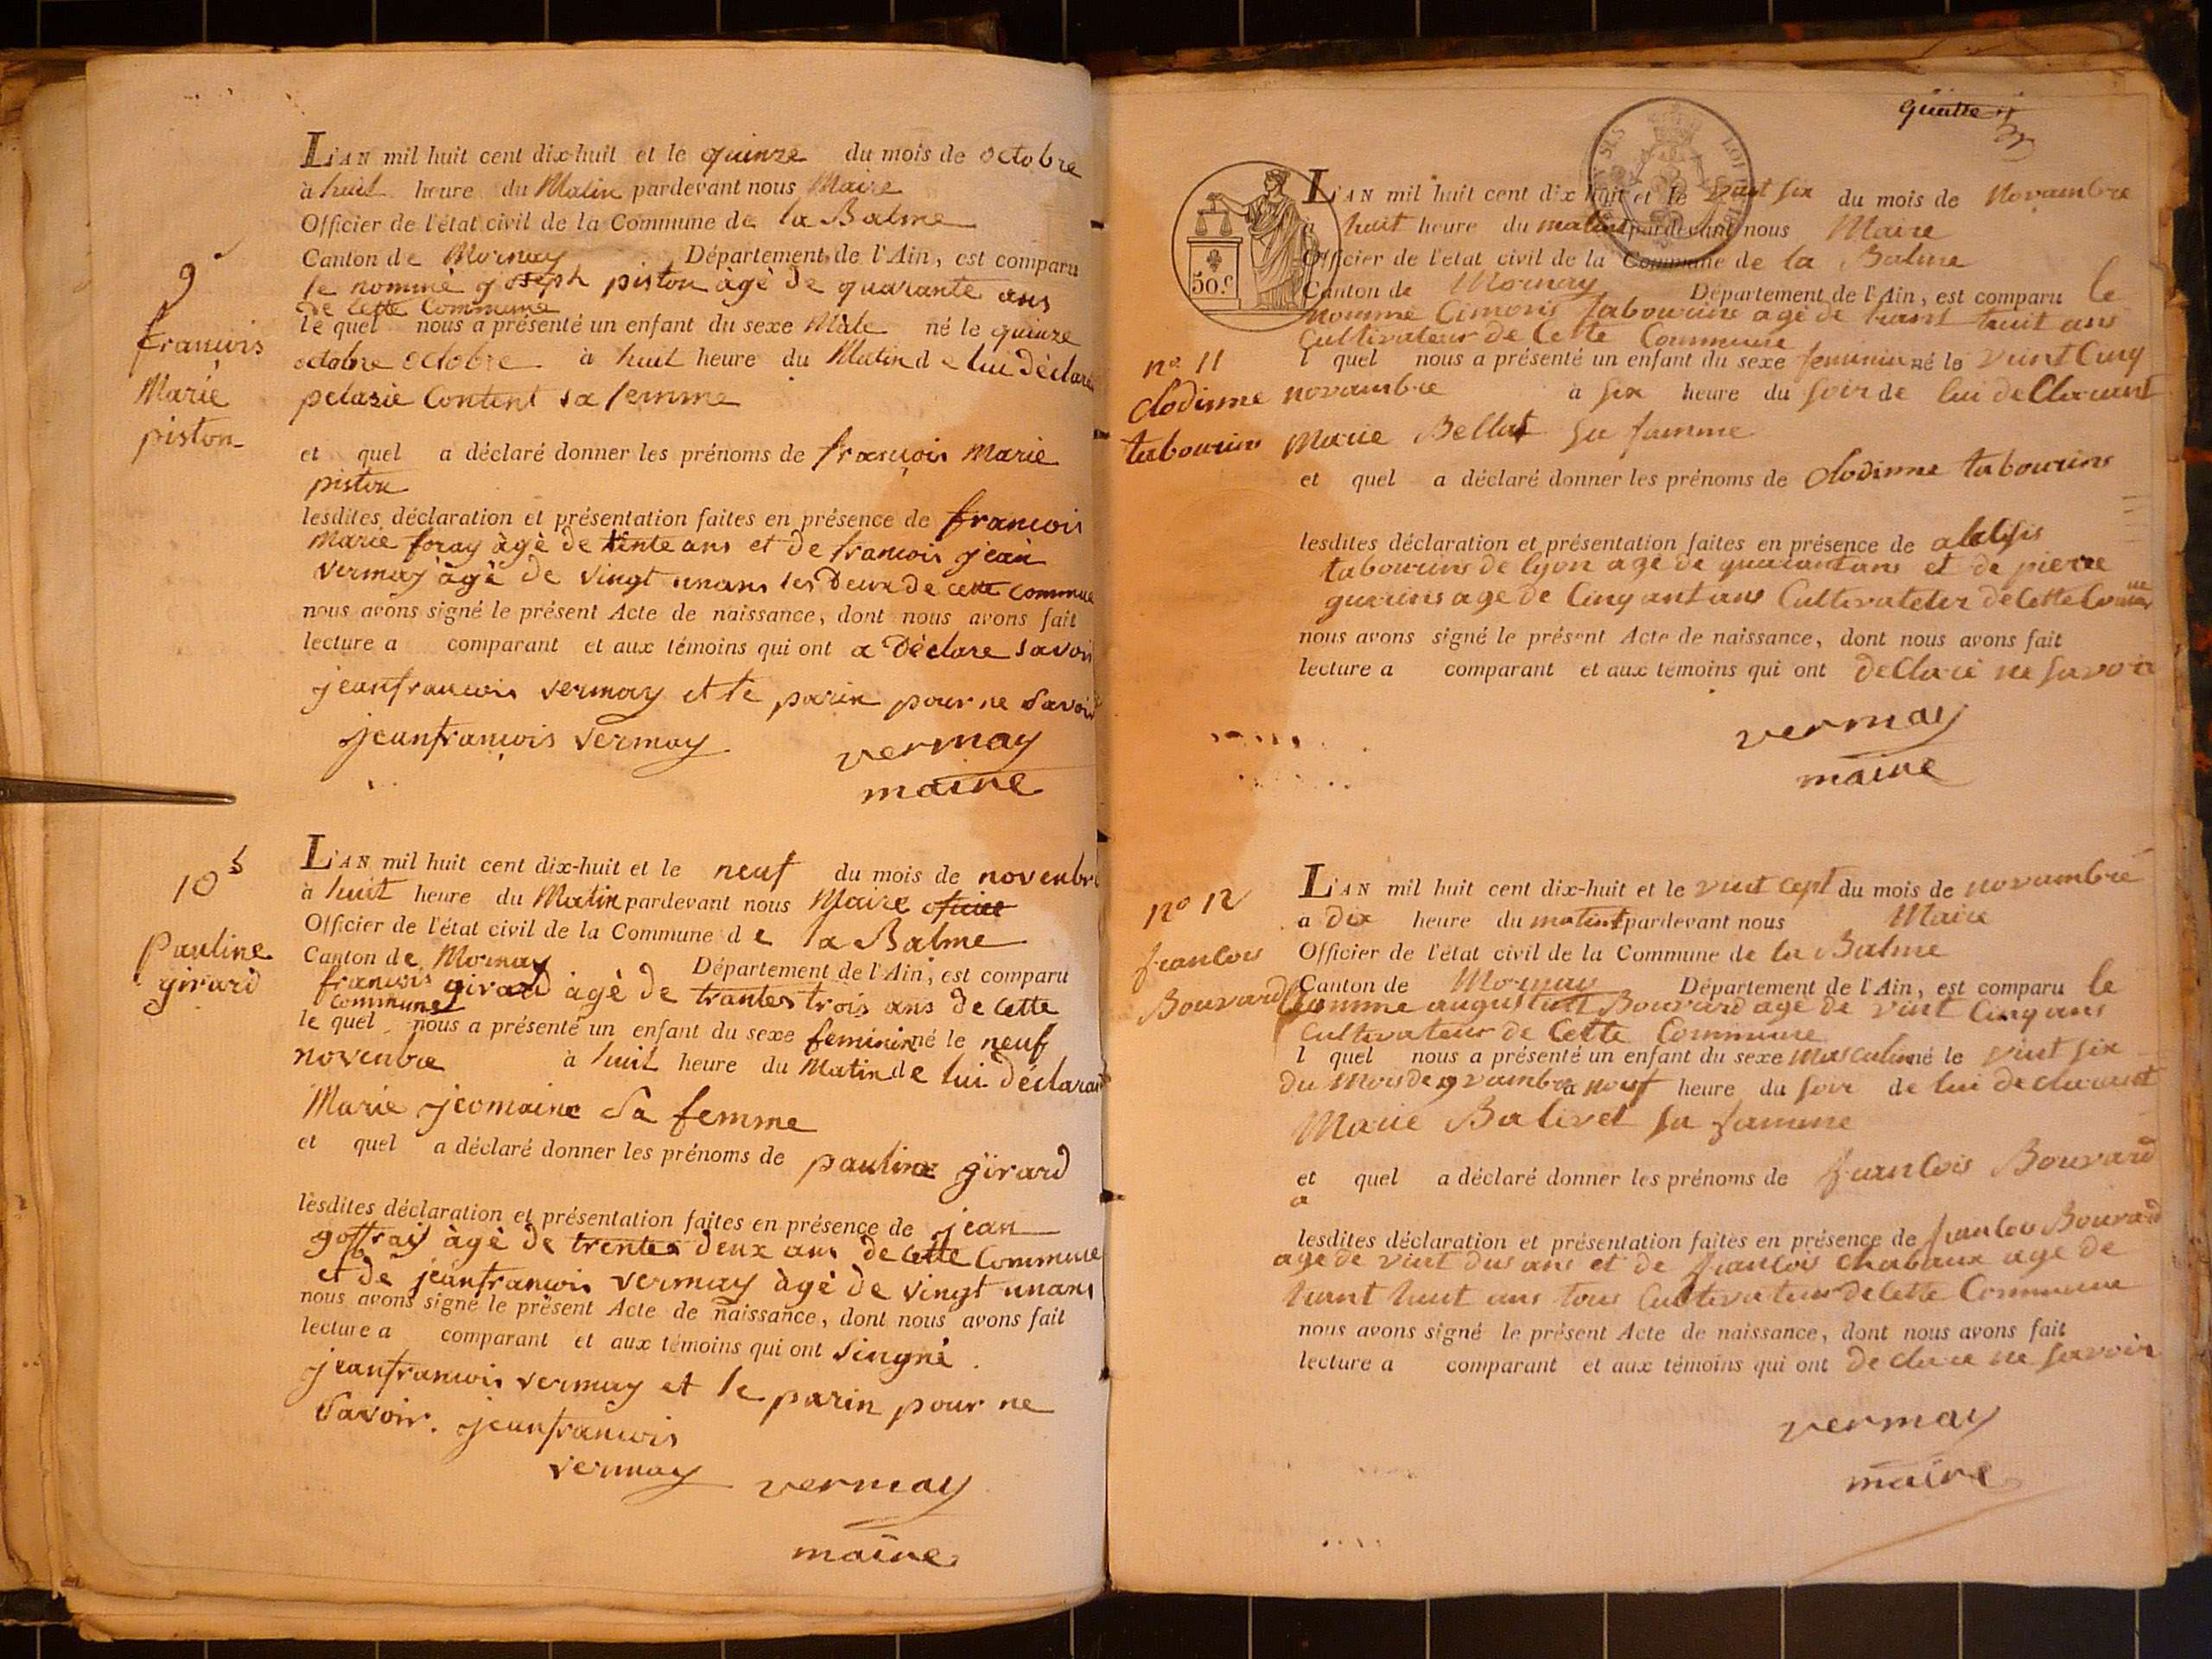 9
francois
Marie
piston
L'AN mil huit cent dix-huit et le quinze du mois de octobre
à huit heure du Matin pardevant nous Maire
Officier de l'état civil de la Commune de la Balme
Canton de Mornay Département de l'Ain, est comparu
le nommé joseph piston àgè de quarante ans
de cette Commune
le quel nous a présenté un enfant du sexe Male né le quinze
octobre octobre à huit heure du Matin de lui dèclaré
pelasie Content sa femme
et quel a déclaré donner les prénoms de françois Marie
piston
lesdites déclaration et présentation faites en présence de francois
Marie foray àgè de trente ans et de francois jean
vermay àgè de vingt unans les Deux de cette commune
nous avons signé le présent Acte de naissance, dont nous avons fait
lecture a comparant et aux témoins qui ont a Dèclare savoir
jeanfrancois vermay et le parin pour ne savoir
jeanfrancois vermay vermay
maire
10
Pauline
girard
L'AN mil huit cent dix-huit et le neuf du mois de novenbre
à huit heure du Matin pardevant nous Maire
Officier de l'état civil de la Commune de la Balme
Canton de Mornay Département de l'Ain, est comparu
francois girard àgè de trantes trois ans de cette
commune
le quel nous a présenté un enfant du sexe feminin né le neuf
novenbre à huit heure du Matin de lui dèclarant
Marie jeomaine sa femme
et quel a déclaré donner les prénoms de pauline girard
lesdites déclaration et présentation faites en présence de jean
goffray àgè de trentes deux ans de cette Commune
et de jeanfrancois vermay àgè de vingt unans
nous avons signé le présent Acte de naissance, dont nous avons fait
lecture a comparant et aux témoins qui ont singné
jeanfrancois vermay et le parin pour ne
savoir. jeanfrancois
vermay vermay
maire
50.c
no 11
Clodinne
tabourins
L'AN mil huit cent dix huit et le vint six du mois de Novambre
a huit heure du matint pardevant nous Maire
Officier de l'état civil de la Commune de la Balme
Canton de Mornay Département de l'Ain, est comparu le
nomme Cimons tabourins age de trant huit ans
Cultivateur de Cette Commune
l quel nous a présenté un enfant du sexe feminin né le vint Cinq
novambre à six heure du soir de lui deClarant
Marie Bellat sa famme
et quel a déclaré donner les prénoms de Clodinne tabourins
lesdites déclaration et présentation faites en présence de
tabourins de lyon age de quarantans et de pierre
guerins age de Cinqantans Cultivateur de Cette Comune
nous avons signé le présent Acte de naissance, dont nous avons fait
lecture a comparant et aux témoins qui ont deClare ne savoir
vermay
maire
no 12
francois
Bouvard
L'AN mil huit cent dix-huit et le vint cept du mois de novambre
a dix heure du matint pardevant nous Maire
Officier de l'état civil de la Commune de la Balme
Canton de Mornay Département de l'Ain, est comparu le
nomme augustint Bouvard age de vint Cinq ans
Cultivateur de Cette Commune
l quel nous a présenté un enfant du sexe masculin né le vint six
du Mois de 9vambre a neuf heure du soir de lui declarant
Marie Balivet sa famme
et quel a déclaré donner les prénoms de francois Bouvard
a
lesdites déclaration et présentation faites en présence de francois Bouvard
age de vint dus ans et de francois Chabaux age de
trant huit ans tous Cultivateur de Cette Commune
nous avons signé le présent Acte de naissance, dont nous avons fait
lecture a comparant et aux témoins qui ont declare ne savoir
vermay
maire